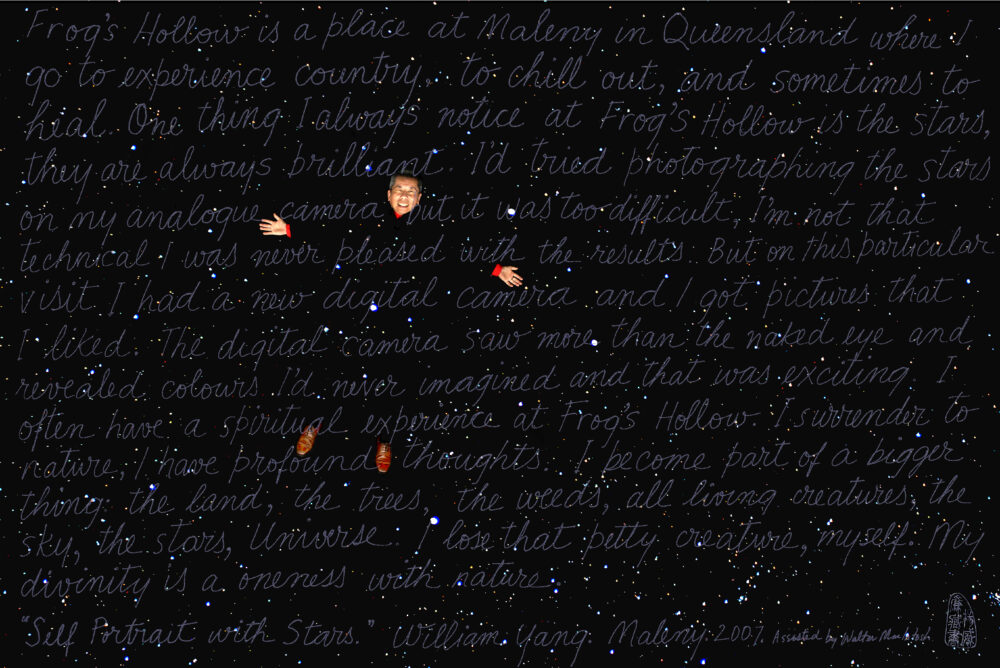 Frog's Hollow is a place at Maleny in Queensland where I
go to experience country, to chill out, and sometimes to
heal. One thing I always notice at Frog's Hollow is the stars,
they are always brilliant. I'd tried photographing the stars
on my analogue camera but it was too difficult, I'm not that
technical I was never pleased with the results. But on this particular
visit I had a new digital camera and I got pictures that
I liked. The digital camera saw more than the naked eye and
revealed colours I'd never imagined and that was exciting. I
often have a spiritual experience at Frog's Hollow. I surrender to
nature, I have profound thoughts. I become part of a bigger
thing: the land, the trees, the weeds, all living creatures, the
sky, the stars, Universe. I lose that petty creature, myself. My
divinity is a oneness with nature.
"Self Portrait with Stars." William Yang. Maleny. 2007. Assisted by Walter